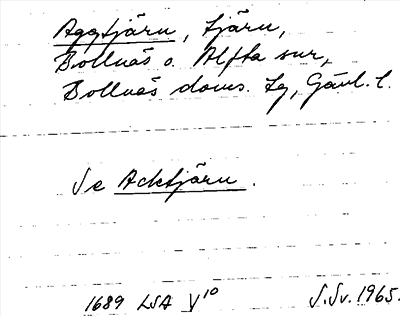 Aggtjärn, tjärn,
Bollnäs o. Alfta snr,
Bollnäs doms. Lg, Gävl. l.
Se Acktjärn.
1689 LSA V10 S.Sv. 1965.